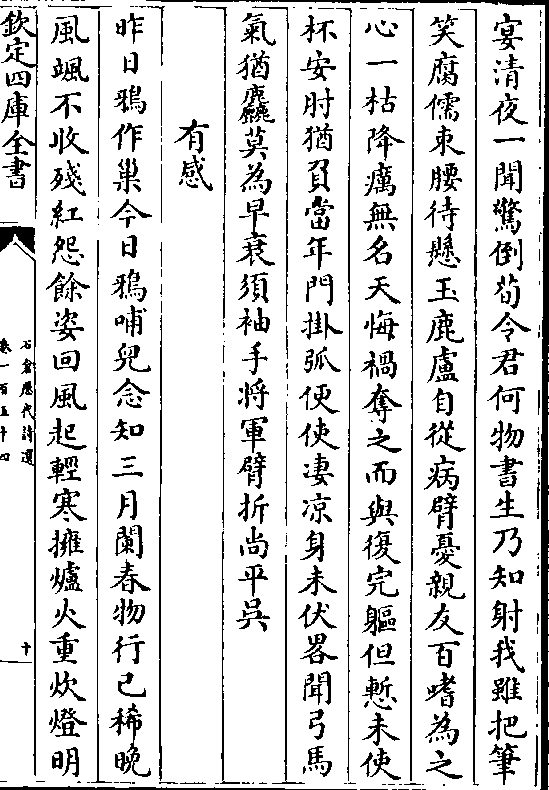 宴清夜一聞驚倒荀令君何物書生乃知射我雖把筆
笑腐儒束腰待懸玉鹿盧自從病臂憂親友百嗜為之
心一枯降癘無名天悔禍奪之而與復完軀但慙未使
杯安肘猶負當年門掛弧便使凄凉身未伏畧聞弓馬
氣猶麤莫為早衰須袖手將軍臂折尚平吳
有感
昨日鴉作巢今日鴉哺兒念知三月闌春物行已稀晚
風颯不收殘紅怨餘姿回風起輕寒擁爐火重炊燈明
欽定四庫全書
石倉歷代詩選
卷一百五十四
十